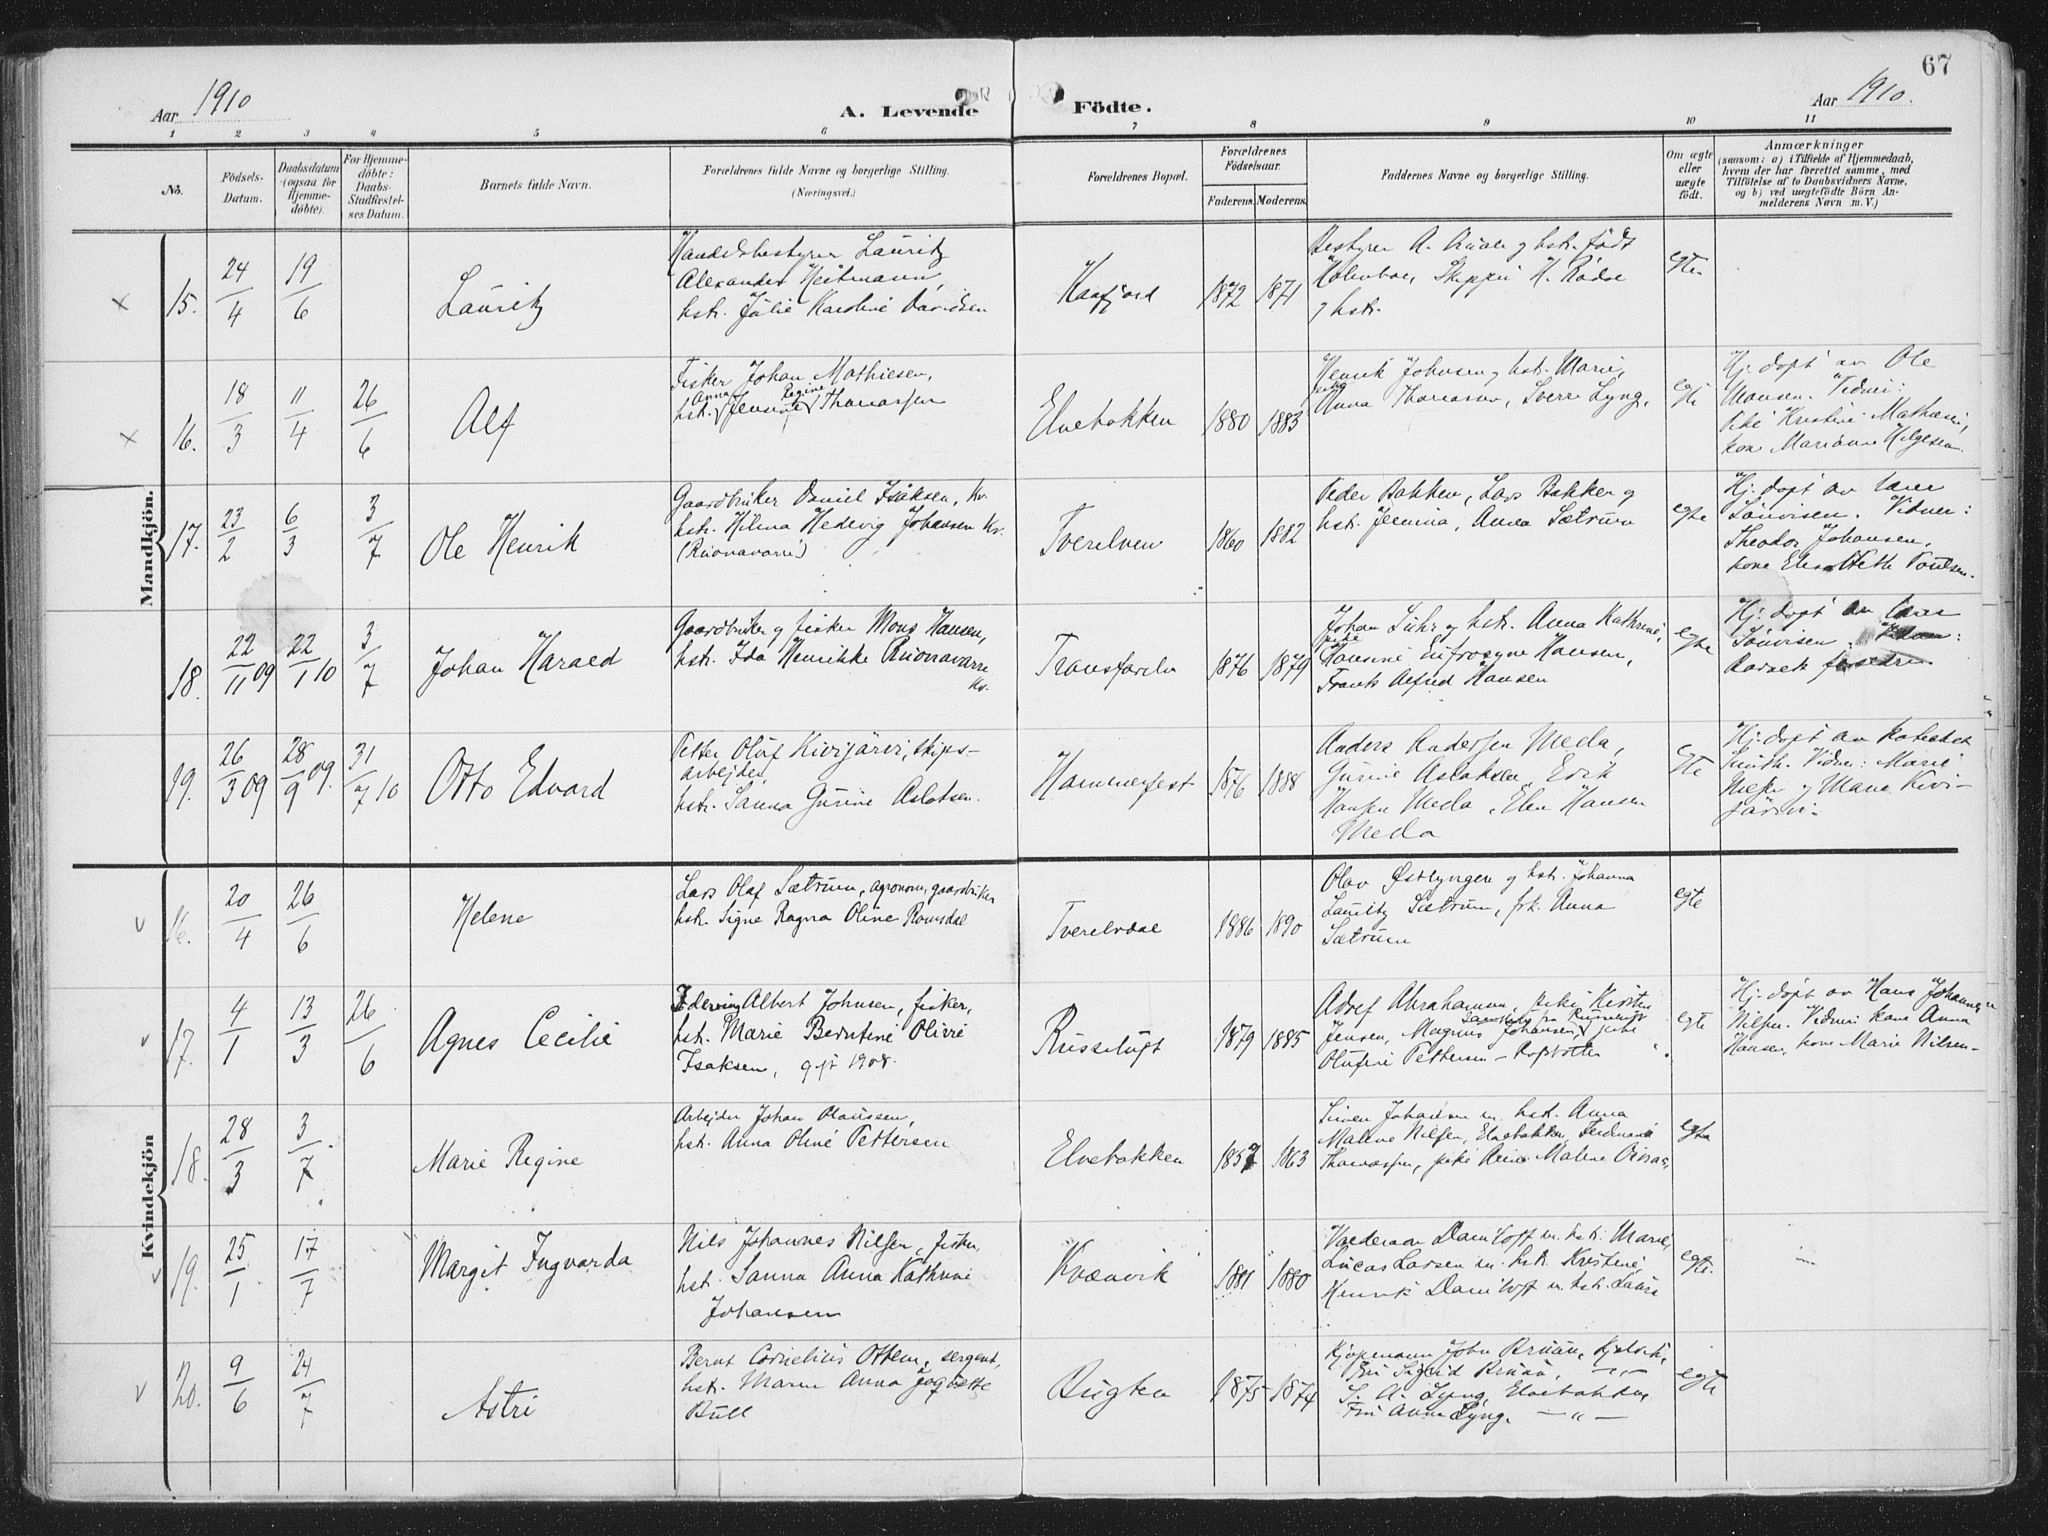 67
Aar 1910
A. Levende
Födte.
Aar 1910.
1 2 3 4 5 6 7 8 9 10 11
No.
Födsels-
Datum.
Daabsdatum
(ogsaa for
Hjemme-
döbte).
For Hjemme-
döbte:
Daabs-
Stadfæstel-
ses Datum.
Barnets fulde Navn.
Forældrenes fulde Navne og borgerlige Stilling.
(Næringsvei.)
Forældrenes Bopæl.
Forældrenes
Födselsaar.
Faderens. Moderens.
Faddernes Navne og borgerlige Stilling.
Om ægte
eller
uægte
födt.
Anmærkninger
(saasom: a) i Tilfælde af Hjemmedaab,
hvem der har forrettet samme, med
Tilföielse af to Daabsvidners Navne,
og b) ved uægtefödte Börn An-
melderens Navn m. V.)
Mandkjön.
15. 24/4 19/6
Lauritz
Handelsbestyrer Lauritz
Alexander Heitmann,
hstr. Julie Karoline Davidsen
Kaafjord
1872 1871
Bestyrer A. og hstr. født
Holmboe, Skipper H. Rødse
og hstr.
egte
16. 18/3 11/4 26/6
Alf
Fisker Johan Mathiesen,
Anna Regine
hstr. Jensine Thomassen
Elvebakken
1880 1883
Henrik Johnsen og hstr. Marie,
pike
Anna Thomassen, Sverre Lyng,
Hj. døpt av Ole
Monsen. Vidner:
Pike Kristine Mathisen,
kone Marianne Helgesen
17. 23/2 6/3 3/7
Ole Henrik
Gaardbruker Daniel Isaksen, Kv.
hstr. Hilma Hedevig Johansen Kv.
(Riionavarre)
Tverelven
1860 1882
Peder Bakken, Lars Bakken og
hstr. Jemina, Anna Sætrum
egte
Hj. døpt av lærer
Tønvisen. Vidner:
Theodor Johansen,
kone Elisabeth Poulsen.
18. 22/11 09 22/1 10 3/7
Johan Harald
Gaardbruker og fisker Mons Hansen,
hstr. Ida Henrikke Riionavarre
Kv.
Transfarelv
1876 1879
Johan Suhr og hstr. Anna Kathrine,
pike
Hansine Eufrosyne Hansen,
Frank Alfred Hansen
egte
Hj. døpt av lærer
Tønvisen.
Barnets forældre
19. 26/3 09 28/9 09. 31/7 10
Otto Edvard
Petter Oluf Kivijärvi, skips-
arbejder,
hstr. Sanna Gurine Aslaksen.
Hammerfest
1876 1888
Anders Andersen Meda,
Gurine Aslaksen, Erik
Hansen Meda, Elen Hansen
Meda
egte
Hj. døpt av kateket
Smith. Vidner: Marie
og Maria Kivi-
järvi.
Kvindekjön
16. 20/4 26/6
Helene
Lars Olaf Sætrum, agronom, gaardbruker
hstr. Signe Ragna Oline Romsdal
Tverelvdal
1886 1890
Olav Østlyngen og hstr. Johanna
Lauritz Sætrum, frk. Anna
Sætrum
egte
17. 4/1 13/3 26/6
Agnes Cecilie
Albert Johnsen, fisker,
hstr. Marie Berntine Olivie
Isaksen, gift 1908.
Russeluft
1879 1885
Adolf Abrahamsen, pike Kirsten
Jensen, Magnus Johansen, pike
Olufine Pettersen — Rafsbotten
egte
Hj. døpt av Hans Johannes
Nilsen. Vidner: kone Anna
Hansen, kone Marie Nilsen—
18. 28/3 3/7
Marie Regine
Arbejder Johan Olaussen,
hstr. Anna Oline Pettersen
Elvebakken
1857 1863
Simen Johansen m. hstr. Anna
Malene Nilsen, Elvebakken, Ferdinand
Thomassen, pike Malene
egte
19. 25/1 17/7
Margit Ingvarda
Nils Johannes Nilsen, fisker,
hst. Sanna Anna Kathrine
Johansen
Kvænvik
1881 1880
Daniloff m. hstr. Marie,
Lucas Larsen m. hstr. Kristine,
Henrik Daniloff m. hstr. Laura
egte.
20. 9/6 24/7
Astri
Bernt Cornelius Ottem, sergent,
hstr. Maren Anna Jaquette
Bull
Bugten
1875 1874
Kjøpmann John Bruun,
Fru Sigrid Bruun, — „ —
S. A. Lyng, Elvebakken,
Fru Anna Lyng. — „ —
egte